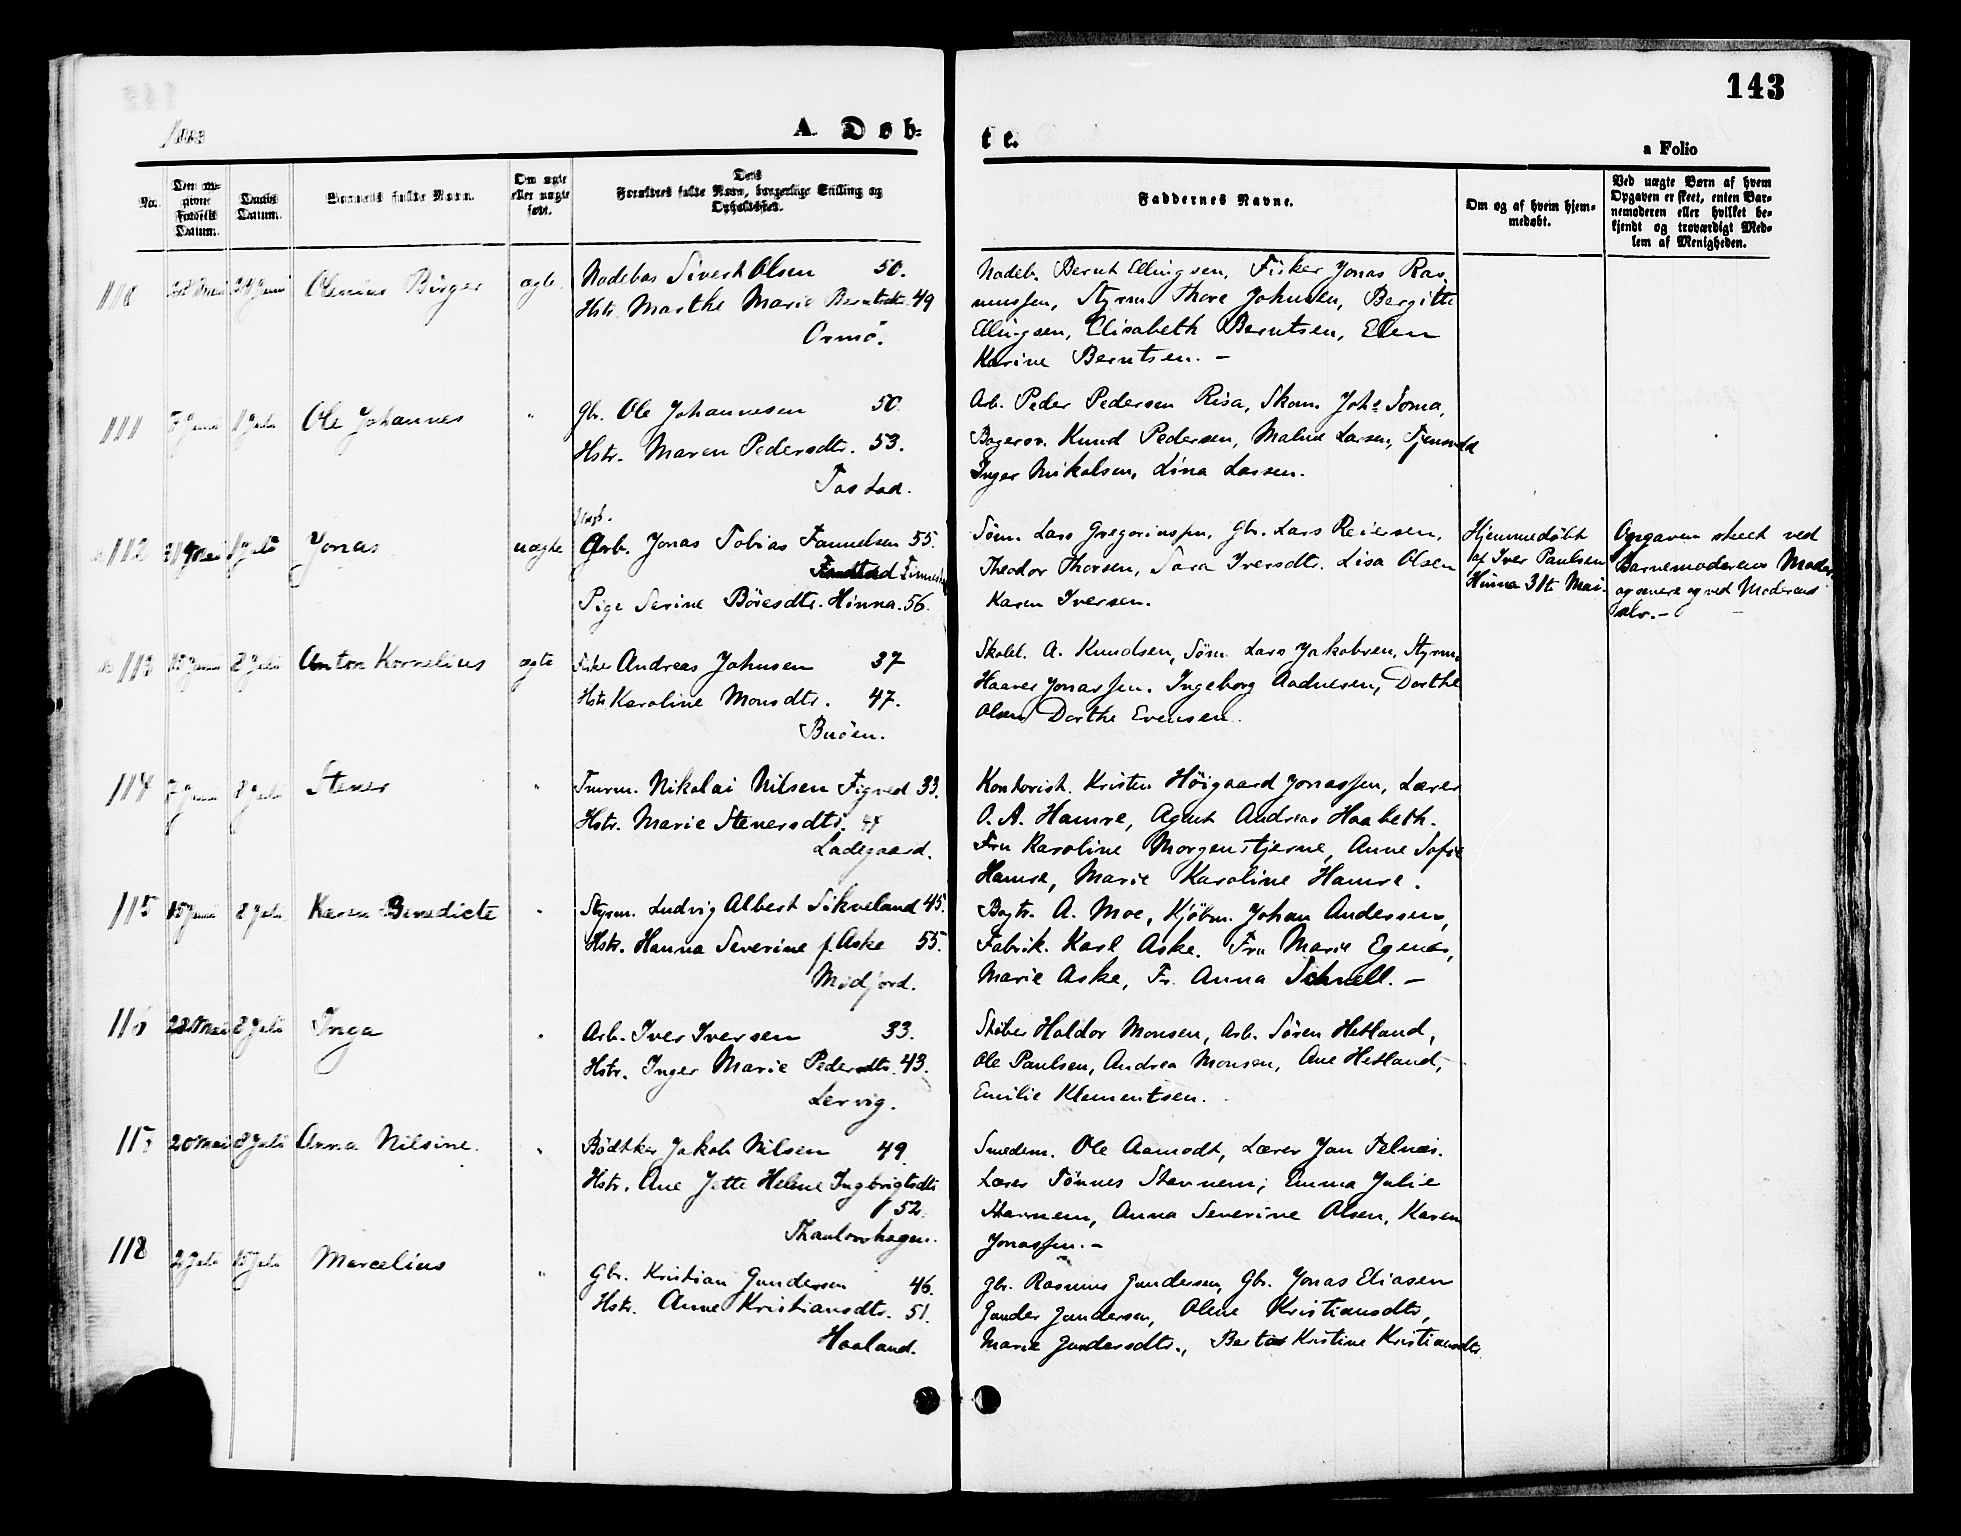 143
1883
A. Døb-
te.
a Folio
No.
Den an-
givne
Fødsels
Datum.
Daabs
Datum.
Barnets fulde Navn.
Om ægte
eller uægte
født.
Dets
Forældres fulde Navn, borgerlige Stilling og
Opholdssted.
Faddernes Navne.
Om og af hvem hjem-
medøbt.
Ved uægte Børn af hvem
Opgaven er skeet, enten Bar-
nemoderen eller hvilket be-
kjendt og troværdigt Med-
lem af Menigheden.
110
24 Juni
Olenius Birger
ægte
Nodebas Sivert Olsen 50.
Hstr. Marthe Marie Berntsdtr. 49
Ormø.
Nodeb. Bernt Ellingsen, Fisker Jonas Ras-
mussen, Styrm. Thore Johnsen, Bergitte
Ellingsen, Elisabeth Berntsen, Elen
Karine Berntsen. –
111
7 Juni
1 Juli
Ole Johannes
"
Gbr. Ole Johannesen 50.
Hstr. Maren Pedersdtr. 53.
Tastad.
Arb. Peder Pedersen Risa, Skom. Johs Soma,
Bagersv. Knud Pedersen, Malene Larsen,
Inger Nikolsen, Lina Larsen.
112
1 Juli
Jonas
uægte
Ungk.
Arb. Jonas Tobias Fannelsen 55.
Pige Serine Børesdtr. Hinna. 56.
Søm. Lars Gregoriussen, Gbr. Lars Reiersen,
Theodor Thorsen, Sara Iversdtr. Lisa Olsen
Karen Iversen.
Hjemmedøbt
af Iver Paulsen
Hinna 31te Mai.
Opgaven skeet ved
Barnemoderens Moder
og senere og ved Moderens
selv. –
113
15 Juni
8 Juli
Anton Kornelius
ægte
Fisker Andreas Johnsen 37
Hstr Karoline Monsdtr. 47.
Buøen.
Skolel. A. Knudsen, Søm. Lars Jakobsen, Styrm.
Haaver Jonassen. Ingeborg Aadnesen, Dorthe
Olsen Dorthe Evensen.
114
7 Juni
8 Juli
Stener
"
Tmrm. Nikolai Nilsen Figved 33.
Hstr. Marie Stenersdtr. 44
Ladegaard.
Kontorist. Kristen Höigaard Jonassen, Lærer
O. A. Hamre, Agent Andreas Haabeth.
Fru Karoline Morgenstjerne, Anne Sofie
Hamre, Marie Karoline Hamre.
115
15 Juni
8 Juli
Karen Benedicte
"
Styrm. Ludvig Albert Sikveland 45.
Hstr. Hanna Severine f. Aske 55.
Midjord.
Bogtr. A. Moe, Kjøbm. Johan Andersen,
Fabrik. Karl Aske. Fru Marie Egenæs,
Marie Aske, Fr. Anna Schnell. –
116
28 Mai
8 Juli
Inga
"
Arb. Iver Iversen 33.
Hstr. Inger Marie Pedersdtr. 43.
Lervig.
Støber Haldor Monsen, Arb. Søren Hetland,
Ole Paulsen, Andrea Monsen, Ane Hetland,
Emilie Klementsen.
117
20 Mai
8 Juli
Anna Nilsine.
"
Bødtker Jakob Nilsen 49.
Hstr. Ane Jette Helene Ingbrigtsdtr
52.
Thaulowhagen.
Smedem. Ole Aamodt, Lærer Jan Telnæs.
Lærer Tönnes Stavnem, Emma Julie
Stavnem, Anna Severine Olsen, Karen
Jonassen. –
118
2 Juli
15 Juli
Marcelius
"
Gbr. Kristian Gundersen 46.
Hstr. Anne Kristiansdtr. 51.
Haaland.
Gbr. Rasmus Gundersen, Gbr. Jonas Eliasen
Gunder Gundersen, Olene Kristiansdtr,
Marie Gundersdtr., Berta Kristine Kristiansdtr.